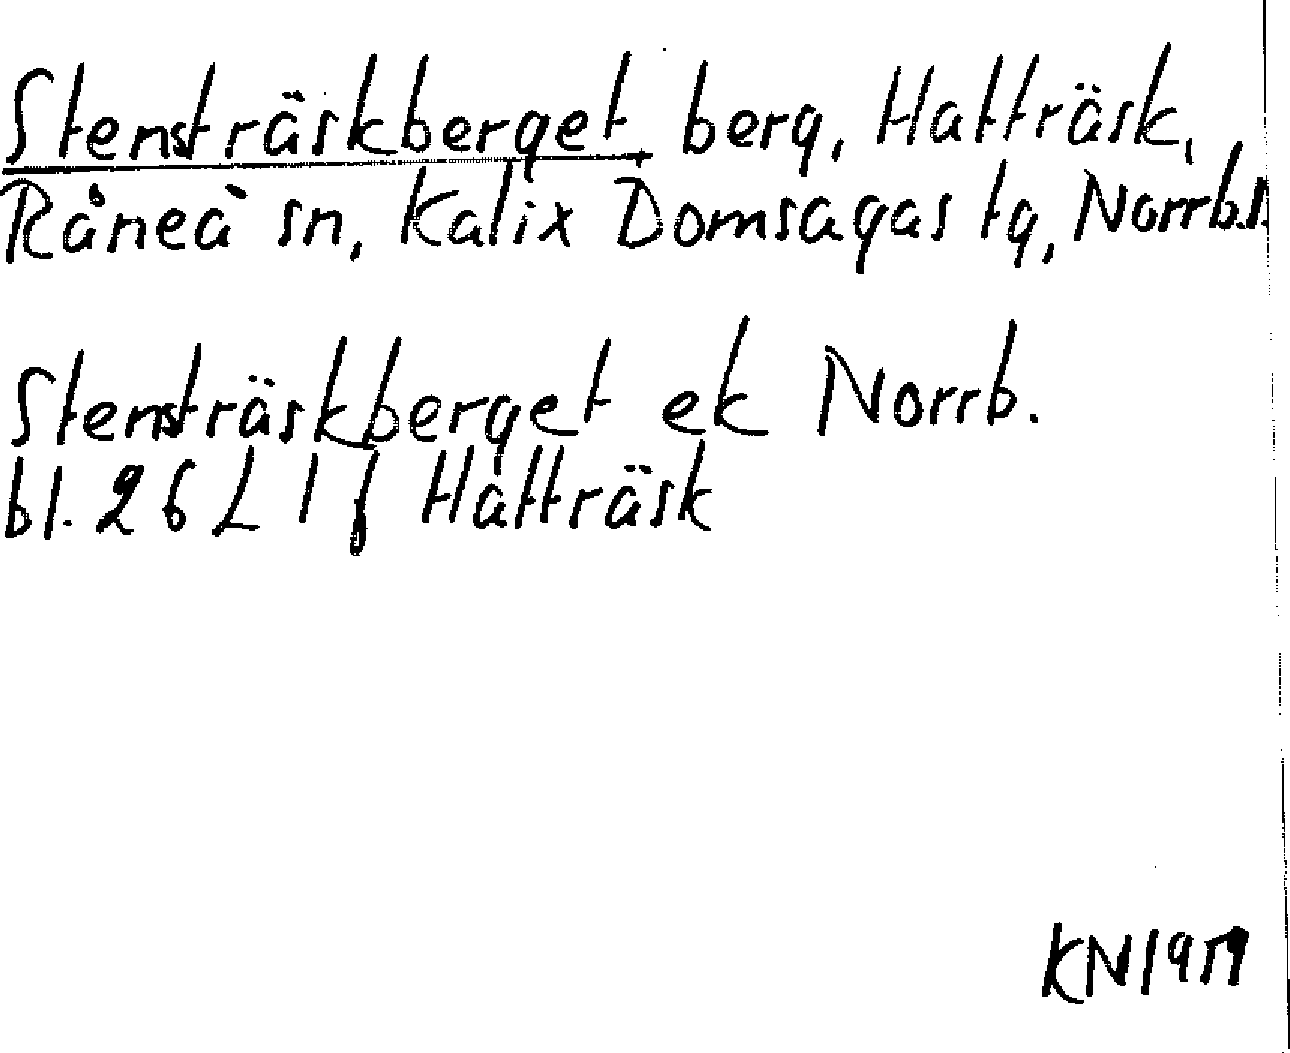 Stensträskberget, berg, Hatträsk,
Råneå sn, Kalix Domsagas tg, Norrb.l.
Stensträskberget ek Norrb.
bl. 26 L 1 f Hatträsk
KN 1979